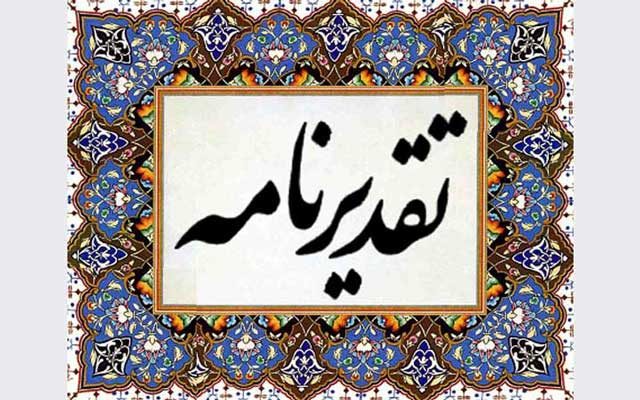 تقدیرنامه